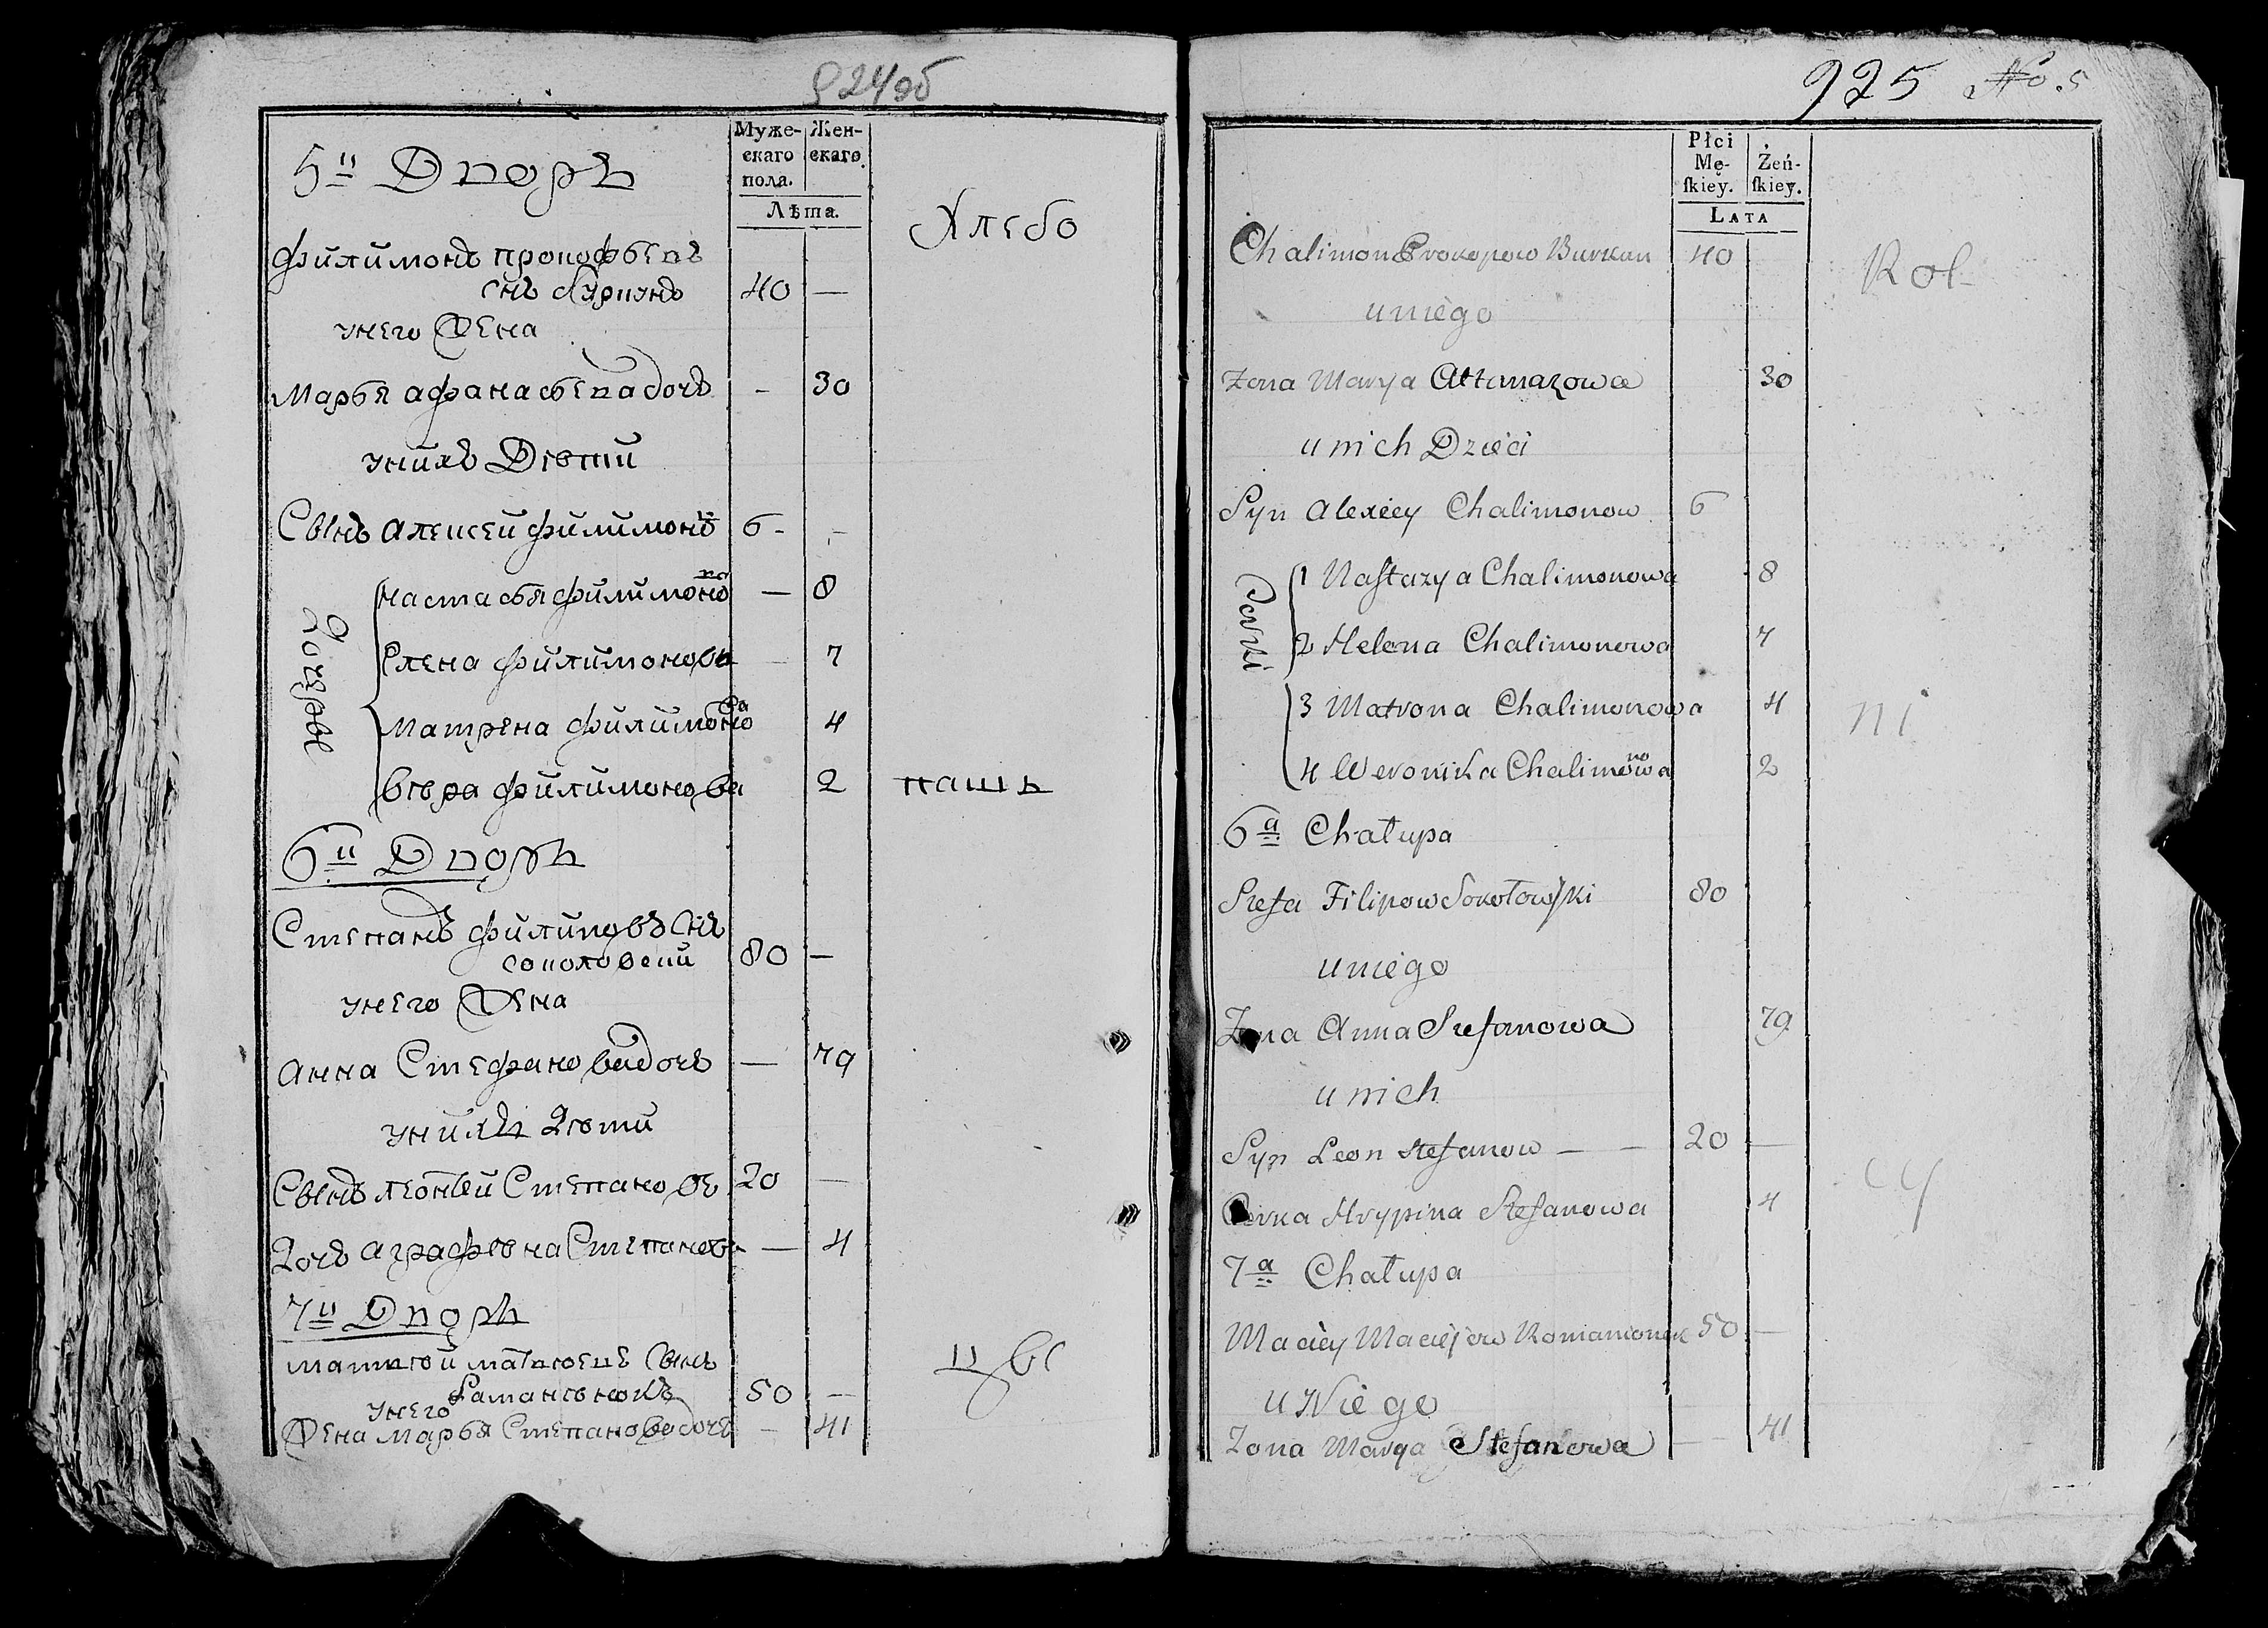 924об
Муже-
скаго
пола.
Жен-
скаго.
Лѣта.
5й Дворъ
Хлебо
филимонъ прокофьевъ
снъ буркунъ 40 —
унего Жена
Марья афанасьева дочь - 30
унихъ Дѣти
Сынъ алексей филимоно 6 - -
Дочерье
настасья филимоно — 8
Елена филимонова — 7
Матрена филимонова 4
вѣра филимонова 2
пашъ
6й Дворъ
Степанъ филиповъ снъ
соколовски 80 —
унего Жена
анна Стефанова дочь — 79
унихъ Дѣти
Сынъ леонтей Степановъ 20 —
Дочь аграфѣна Степанова — 4
7й Дворъ
матвѣй матвѣевъ Сынъ
50 —
унего
Жена марья Степанова дочь - 41
цы
925 No. 5
Płci
Mę-
skiey.
Żeń-
skiey.
LATA
Chalimon Prokopow Burkun 40
Rol-
uniego
Zona Marya Attanazowa 30
unich Dzieci
Syn Alexiey Chalimonow 6
Corki
1 Nastazya Chalimonowa 8
2 Helena Chalimonowa 7
3 Matrona Chalimonowa 4
ni
4 Weronika Chalimonowa 2
6a Chałupa
Stefa Filipow Sokołowski 80
uniego
Zona Anna Stefanowa 79
unich
Syn Leon Stefanow — — 20 —
cy
Corka Hrypina Stefanowa 4
7a Chałupa
Maciey Maciejew Romanionek 50 —
u Niego
Zona Marya Stefanowa — 41